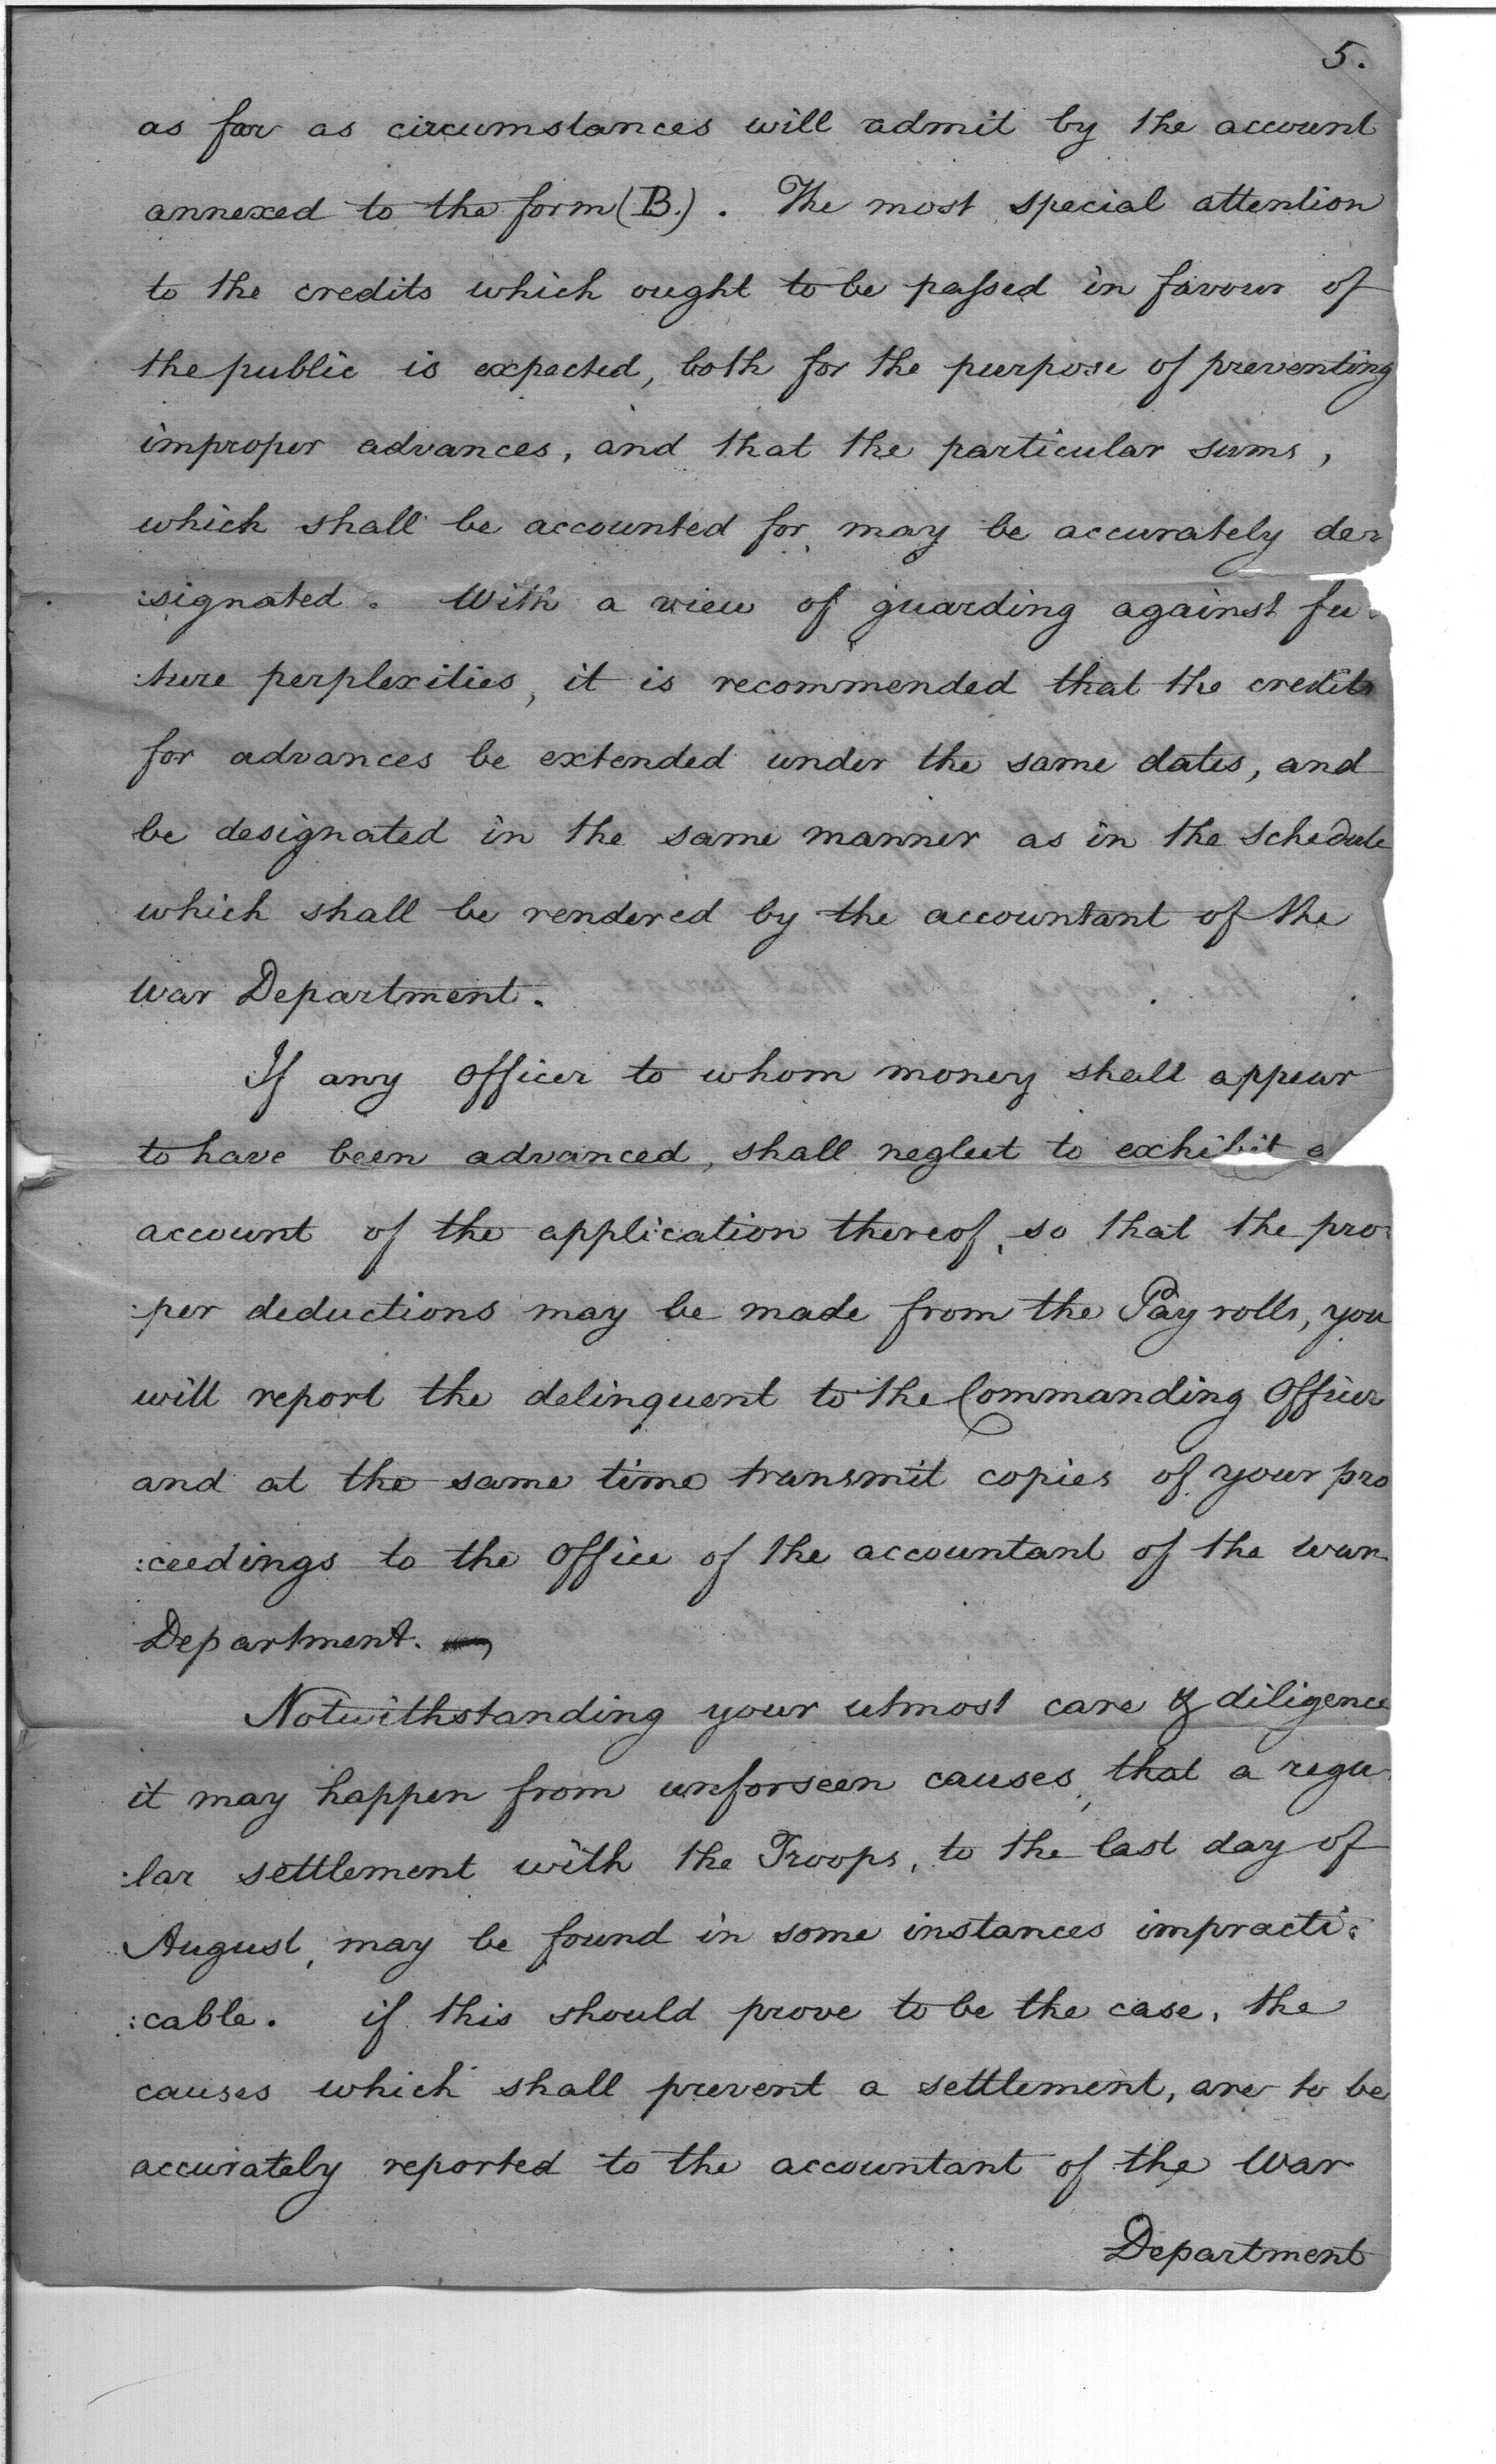 5.
as far as circumstances will admit by the account
annexed to the form (B.). The most special attention
to the credits which ought to be paſsed in favour of
the public is expected, both for the purpose of preventing
improper advances, and that the particular sums,
which shall be accounted for, may be accurately de:
:signated. With a view of guarding against fu:
:ture perplexities, it is recommended that the credits
for advances be extended under the same dates, and
be designated in the same manner as in the schedule
which shall be rendered by the accountant of the
War Department.
If any Officer to whom money shall appear
to have been advanced, shall neglect to exhibit
account of the application thereof, so that the pro:
:per deductions may be made from the Pay rolls, you
will report the delinquent to the Commanding Officer
and at the same time transmit copies of your pro
:ceedings to the Office of the accountant of the War
Department.
Notwithstanding your utmost care & diligence
it may happen from unforseen causes, that a regu
:lar settlement with the Troops, to the last day of
August, may be found in some instances impracti:
:cable. if this should prove to be the case, the
causes which shall prevent a settlement, are to be
accurately reported to the accountant of the War
Department